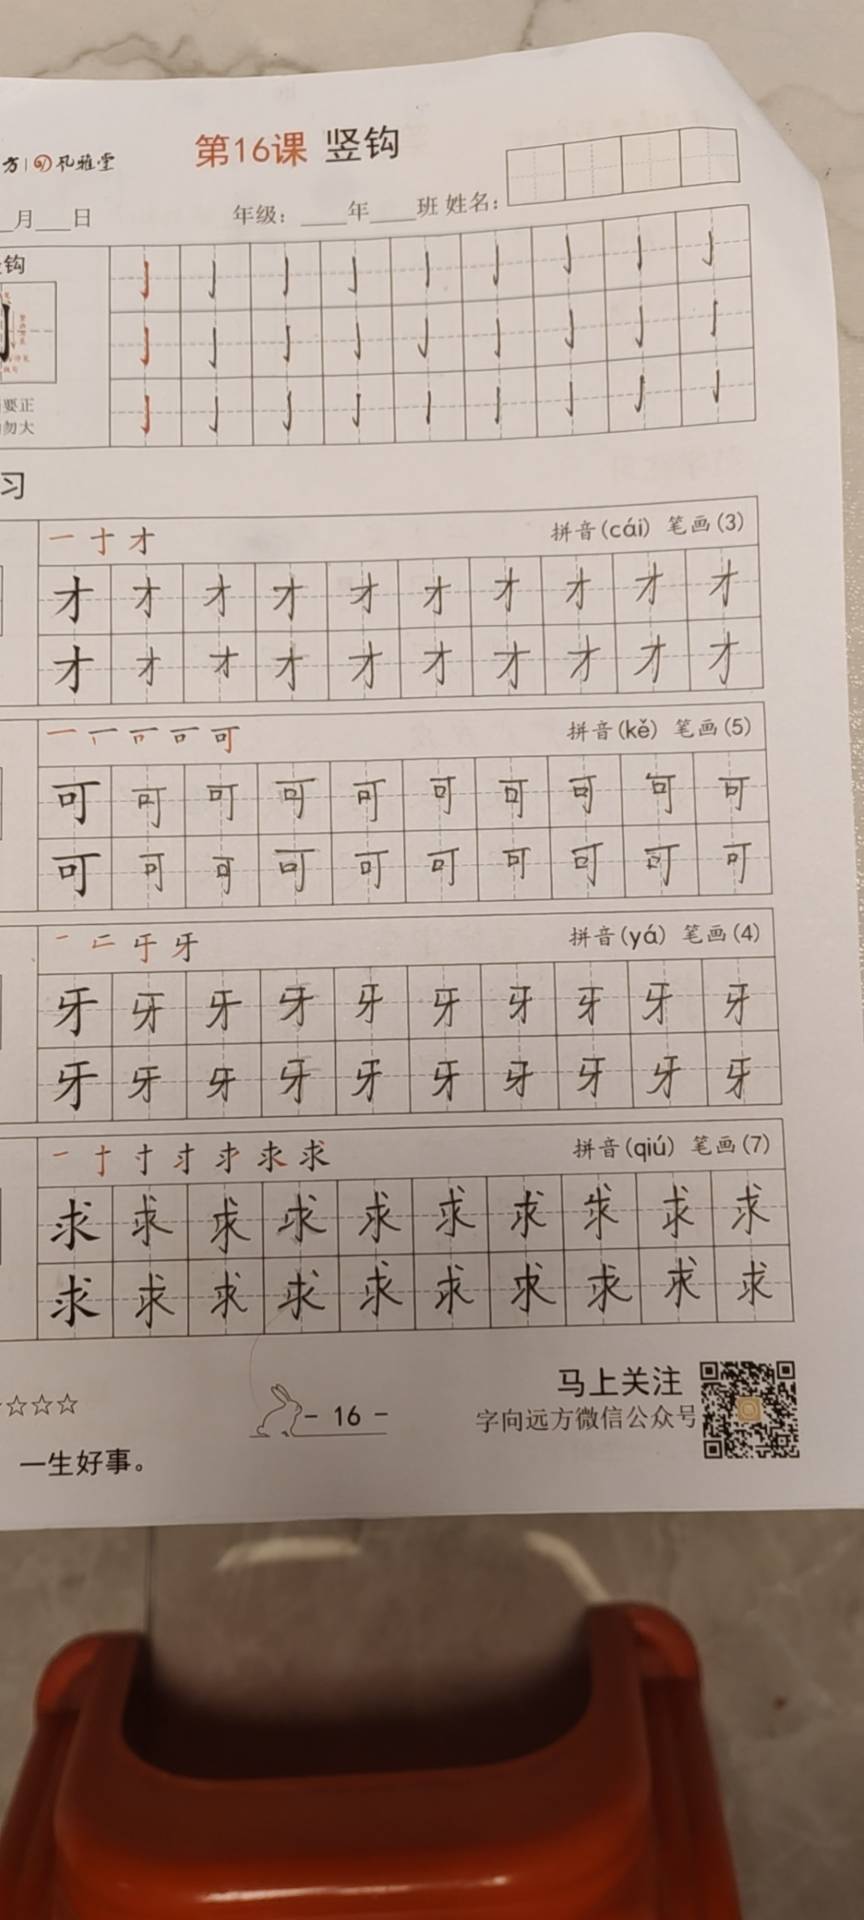 方 风雅堂
第16课 竖钩
月 日 年级： 年 班 姓名：
钩
亅 亅 亅 亅 亅 亅 亅 亅 亅
亅 亅 亅 亅 亅 亅 亅 亅 亅
要正
勿大
亅 亅 亅 亅 亅 亅 亅 亅 亅
习
一 十 才 拼音(cái) 笔画(3)
才 才 才 才 才 才 才 才 才 才
才 才 才 才 才 才 才 才 才 才
拼音(kě) 笔画(5)
可 可 可 可 可 可 可 可 可 可
可 可 可 可 可 可 可 可 可 可
拼音(yá) 笔画(4)
牙 牙 牙 牙 牙 牙 牙 牙 牙 牙
牙 牙 牙 牙 牙 牙 牙 牙 牙 牙
拼音(qiú) 笔画(7)
求 求 求 求 求 求 求 求 求 求
求 求 求 求 求 求 求 求 求 求
☆☆☆☆
- 16 -
马上关注
字向远方微信公众号
一生好事。